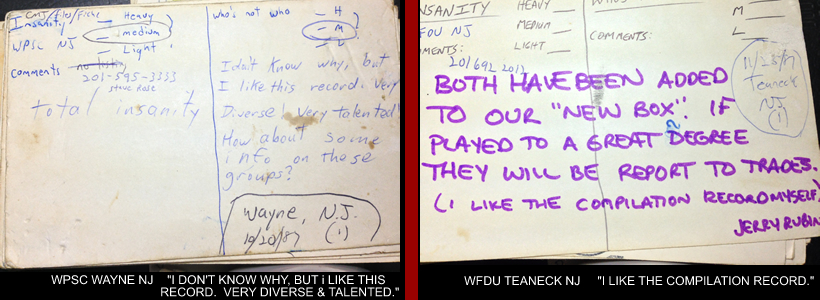 CMJ/flo/fichs
Insanity — Heavy
WPSC NJ — medium
— Light
Comments no list
201-595-3333
Steve Rose
total insanity
who's not who — H
— M
— L
I don't know why, but
I like this record. very
Diverse! very talented!
How about some
info on these
groups?
Wayne, N.J.
10/20/87 (1)
INSANITY HEAVY
MEDIUM
FDU NJ
LIGHT
MENTS:
201/692 2012
M
L
COMMENTS:
11/25/87
Teaneck
NJ
(1)
BOTH HAVE BEEN ADDED
TO OUR "NEW BOX". IF
PLAYED TO A GREAT DEGREE
THEY WILL BE REPORT TO TRADES.
(I LIKE THE COMPILATION RECORD MYSELF)
JERRY RUBIN
WPSC WAYNE NJ "I DON'T KNOW WHY, BUT i LIKE THIS
RECORD. VERY DIVERSE & TALENTED."
WFDU TEANECK NJ "I LIKE THE COMPILATION RECORD."